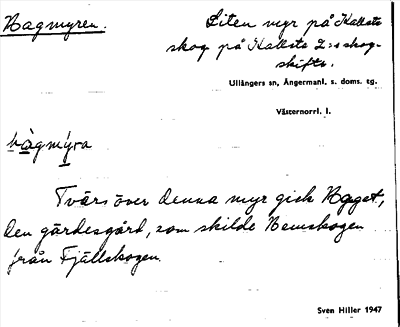 Bagmyren.
Liten myr på Kallsta
skog på Kallsta 2:s skog-
skifte.
Ullångers sn, Ångermanl. s. doms. tg.
Västernorrl. l.
bàgmýra
Tvärs över denna myr gick Baget,
den gärdesgård, som skilde Hemskogen
från Fjällskogen.
Sven Hiller 1947